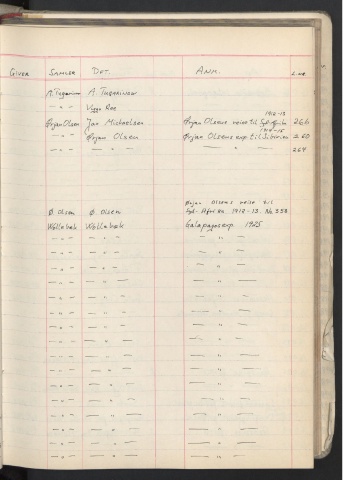 GIVER SAMLER DET. ANM. L.NR.
A. Tugarinow A. TUGARINOW
— " — Viggo Ree
Ørjan Olsen Jan Michaelsen Ørjan Olsens reise til Syd-Afrika 1912-13 266
— " — Ørjan Olsen Ørjan Olsens exp. til Sibirien 1914-15 260
— " — — " — — " — 264
Ø. Olsen Ø. Olsen Ørjan Olsens reise til
Syd-Afrika 1912-13. No 353
Wollebæk Wollebæk Galapagosexp. 1925
— " — — " — — " —
— " — — " — — " —
— " — — " — — " —
— " — — " — — " —
— " — — " — — " —
— " — — " — — " —
— " — — " — — " —
— " — — " — — " —
— " — — " — — " —
— " — — " — — " —
— " — — " — — " —
— " — — " — — " —
— " — — " — — " —
— " — — " — — " —
— " — — " — — " —
— " — — " — — " —